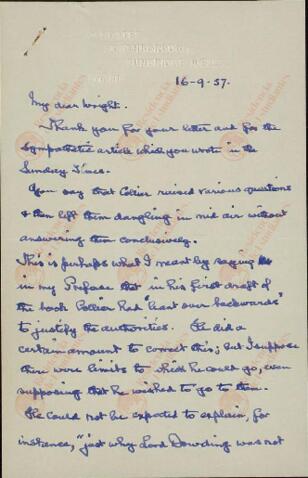 16-9-57.
My dear Wright.
Thank you for your letter and for the
sympathetic article which you wrote in the
Sunday Times.
You say that Collier raised various questions
& then left them dangling in mid air without
answering them conclusively.
This is perhaps what I meant by saying
in my Preface that in his first draft of
the book Collier had "leant over backwards"
to justify the authorities. He did a
certain amount to correct this; but I suppose
there were limits to which he could go, even
supposing that he wished to go to them.
He could not be expected to explain, for
instance, "just why Lord Dowding was not